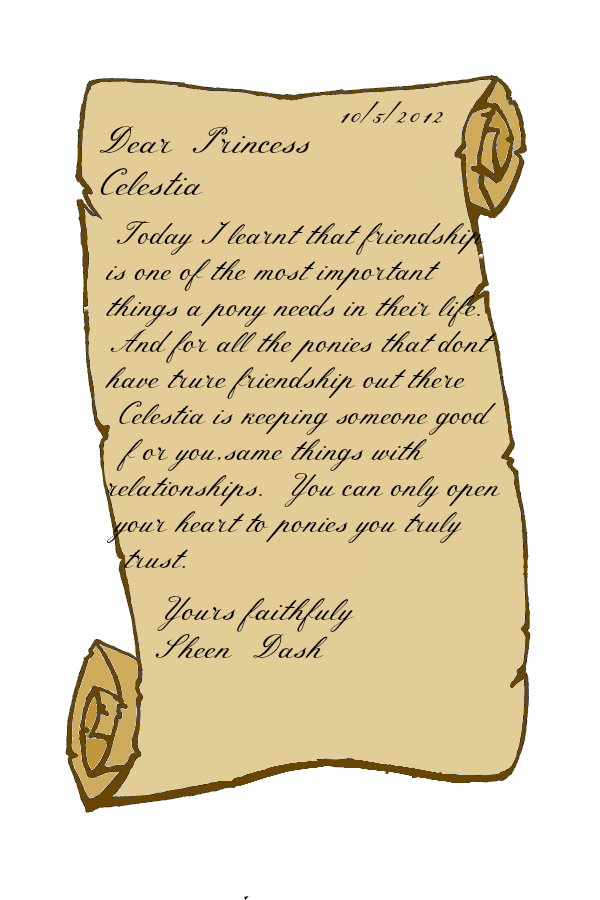 10/5/2012
Dear Princess
Celestia
Today I learnt that friendship
is one of the most important
things a pony needs in their life.
And for all the ponies that dont
have trure friendship out there
Celestia is keeping someone good
f or you.same things with
relationships. You can only open
your heart to ponies you truly
trust.
Yours faithfuly
Sheen Dash